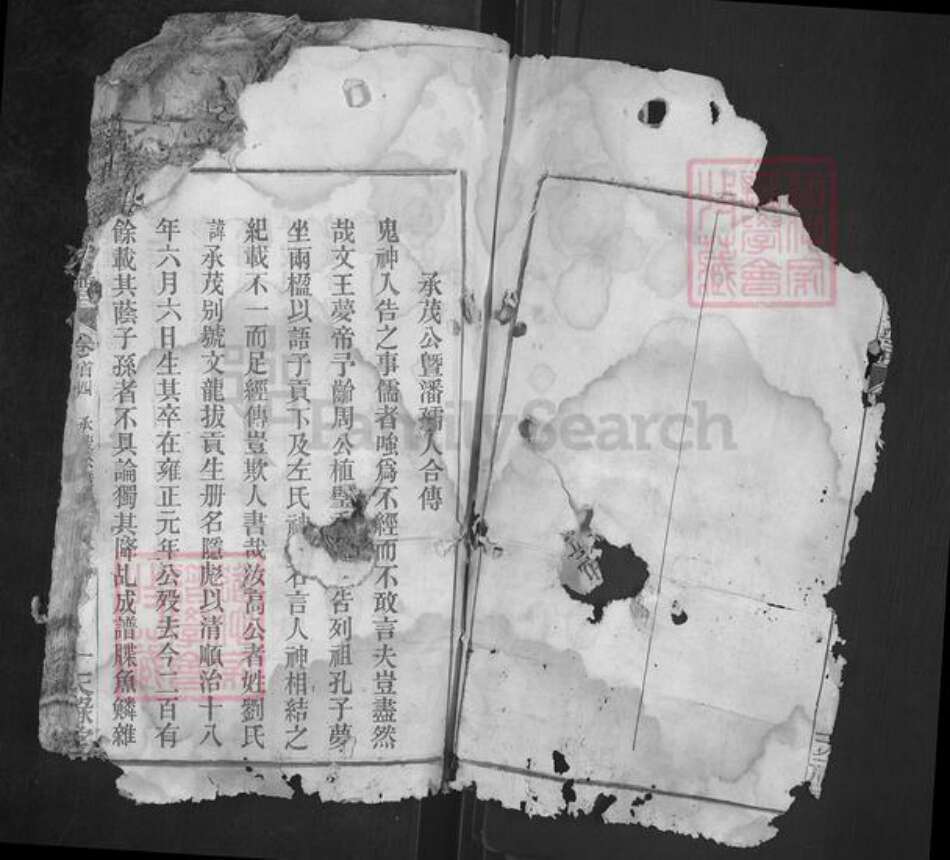 承茂公暨潘孺人合傳
鬼神入告之事儒者嗤爲不經而不敢言夫豈盡然
哉文王夢帝予齡周公植璧告列祖孔子夢
坐兩楹以語子貢下及左氏神言人神相結之
紀載不一而足經傳豈欺人書哉汝高公者姓劉氏
諱承茂别號文龍拔貢生册名隱彪以清順治十八
年六月六日生其卒在雍正元年公歿去今二百有
餘載其蔭子孫者不具論獨其降乩成譜牒魚鱗雜
卷首四
一
FamilySearch